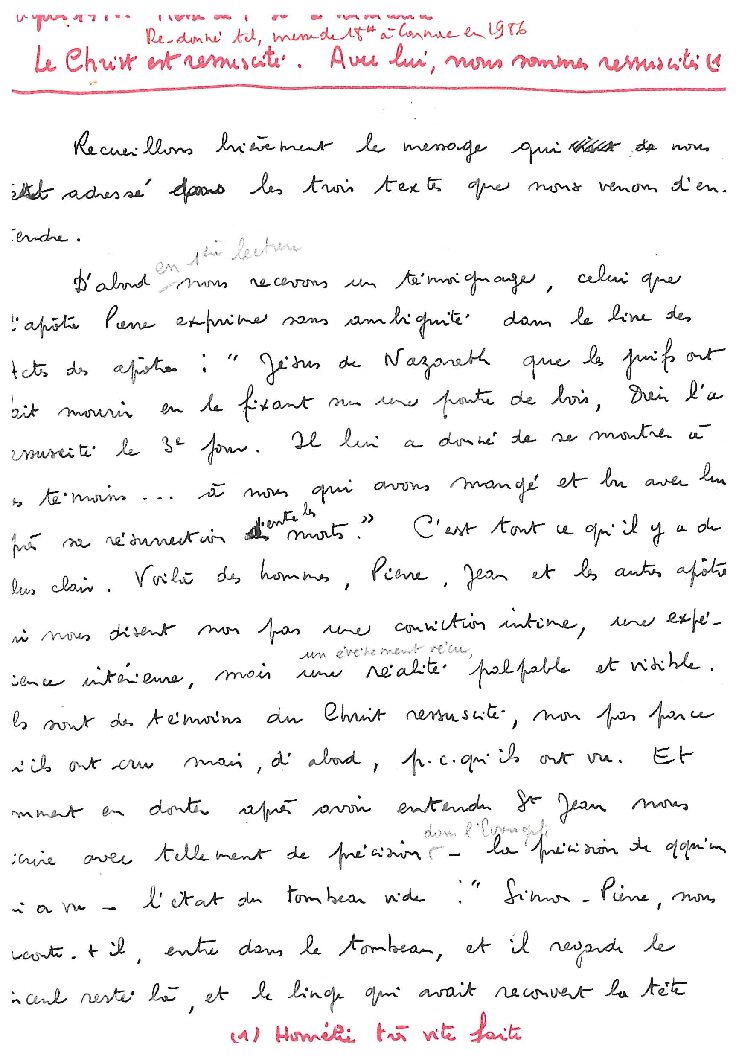 Re-donné tel, messe de 18H à Carnac en 1986
Le Christ est ressuscité. Avec lui, nous sommes ressuscités (1
Recueillons brièvement le message qui de nous
est adressé dans les trois textes que nous venons d'en-
tendre.
en 1ère lecture
D'abord nous recevons un témoignage, celui que
l'apôtre Pierre exprime sans ambiguité dans le livre des
Actes des apôtres : "Jésus de Nazareth que les juifs ont
ait mourir en le fixant sur une poutre de bois, Dieu l'a
essuscité le 3e jour. Il lui a donné de se montrer à
s témoins... à nous qui avons mangé et bu avec lui
près sa résurrection d'entre les morts." C'est tout ce qu'il y a de
lus clair. Voilà des hommes, Pierre, Jean et les autres apôtre
ui nous disent non pas une conviction intime, une expé-
un évènement vécu,
ience intérieure, mais une réalité palpable et visible.
ls sont des témoins du Christ ressuscité, non pas parce
u'ils ont cru mais, d'abord, p.c.qu'ils ont vu. Et
mment en douter après avoir entendu St Jean nous
dans l'Evangile
écrire avec tellement de précision - la précision de qqu'un
ui a vu - l'état du tombeau vide : "Simon-Pierre, nous
aconte-t-il, entre dans le tombeau, et il regarde le
inceul resté là, et le linge qui avait recouvert la tête
(1) Homélie très vite faite